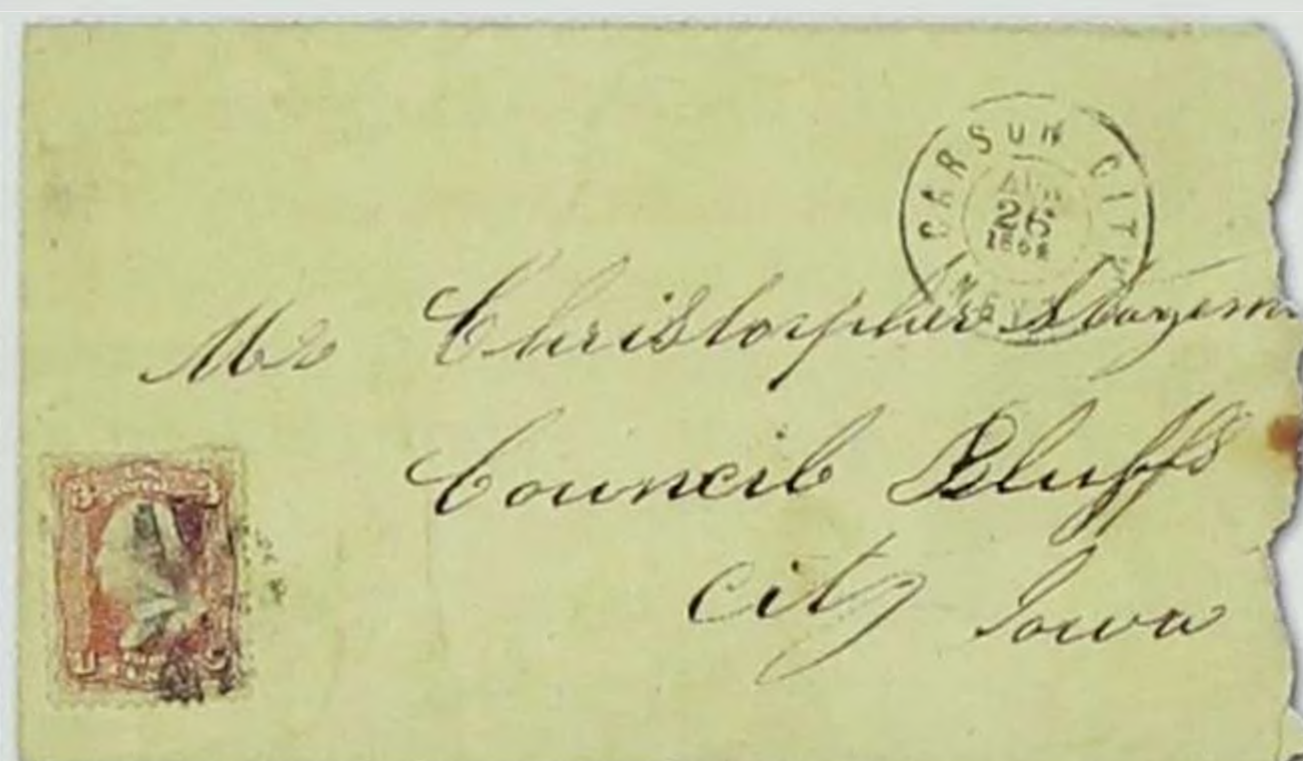 CARSON CITY
25
186
NEV
Mr Christopher
Council Bluffs
City Iowa
3 3